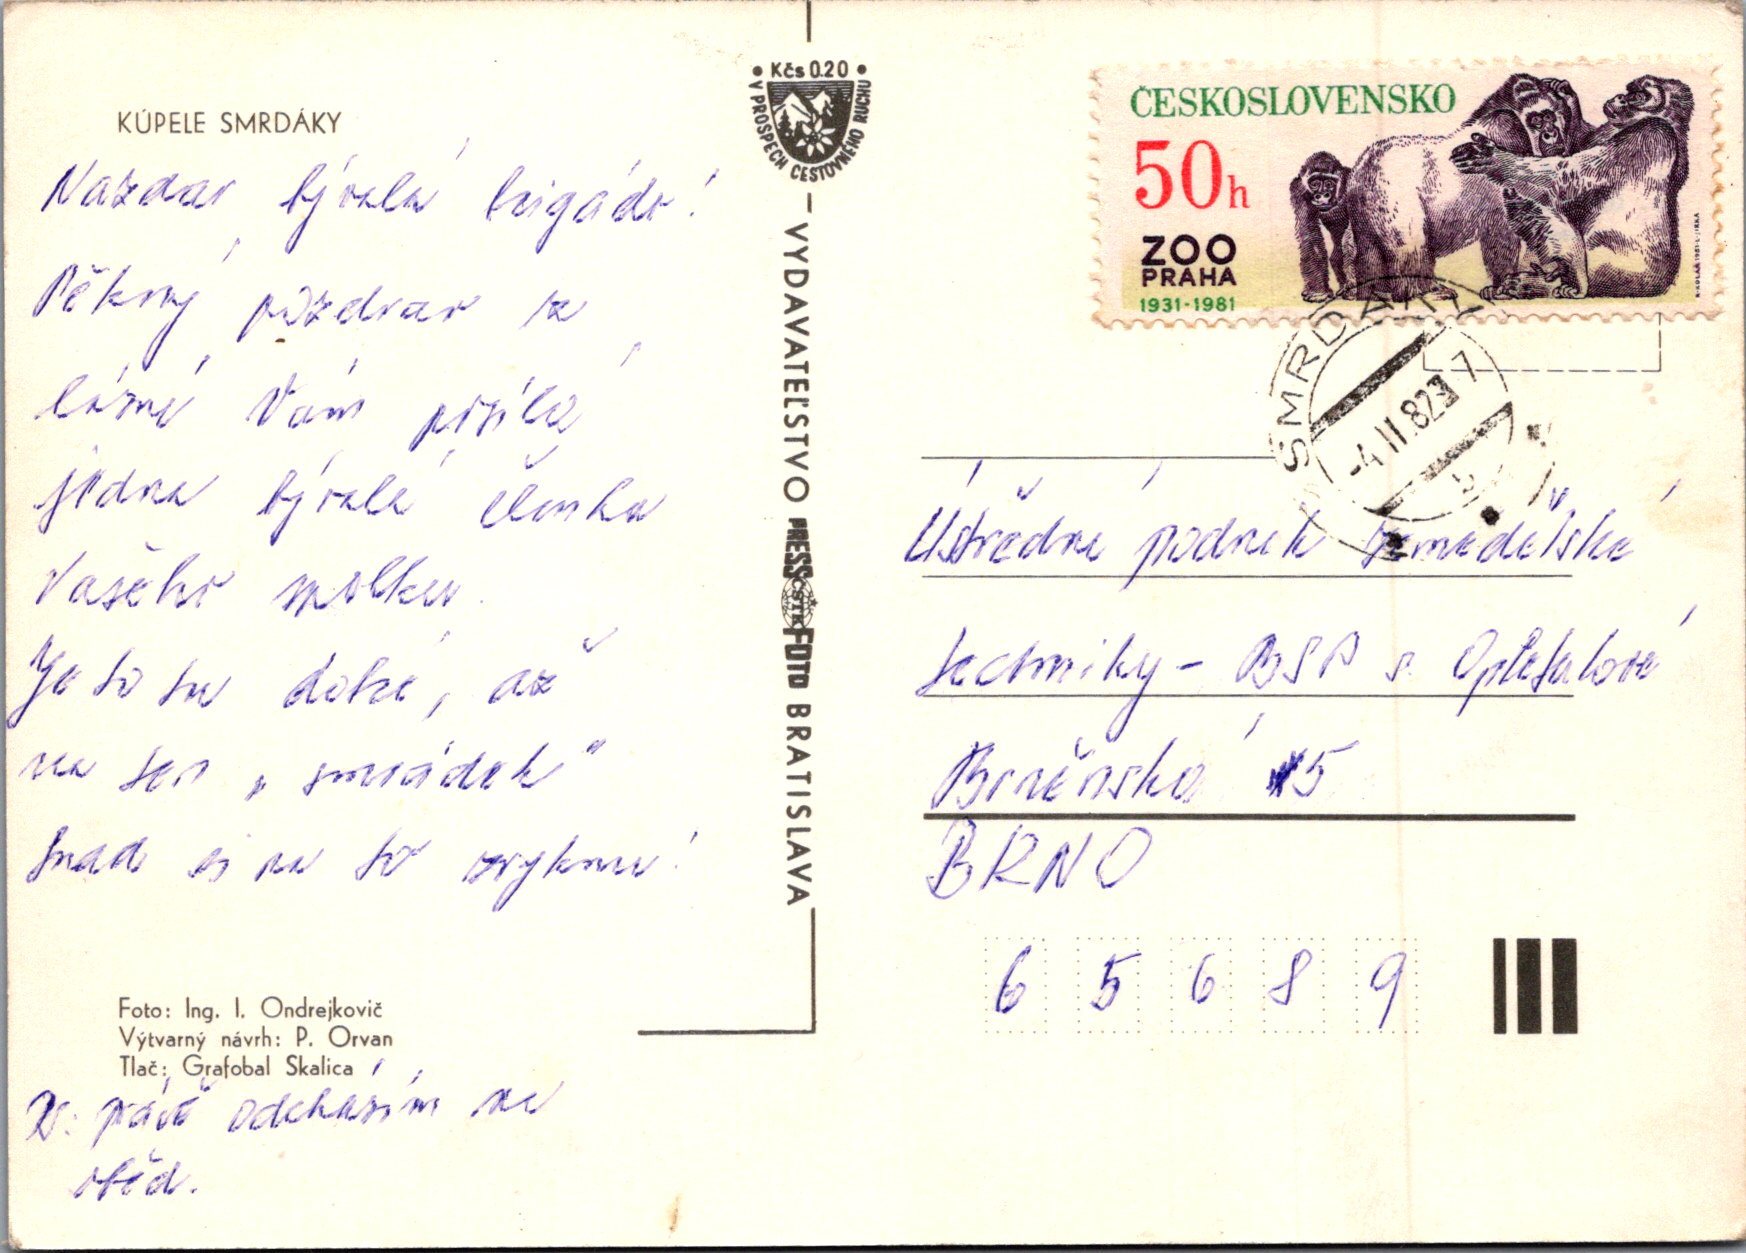 KÚPELE SMRDÁKY
Nazdar bývalá brigádo!
Pěkný pozdrav z
lázní Vám posílá
jedna bývalá členka
Vašeho spolku.
Je to tu dobré, až
na ten „smrádek“
snad si na to zvyknu!
Foto: Ing. I. Ondrejkovič
Výtvarný návrh: P. Orvan
Tlač: Grafobal Skalica
PS: právě odcházím na
oběd.
• Kčs 0.20 •
V PROSPECH CESTOVNÉHO RUCHU
VYDAVATEĽSTVO PRESSFOTO BRATISLAVA
ČSTK
ČESKOSLOVENSKO
50h
ZOO
PRAHA
1931-1981
SMRDÁKY
-4.II.82
Ústřední podnik zemědělské
techniky - BSP s.
Brněnská 15
BRNO
65689